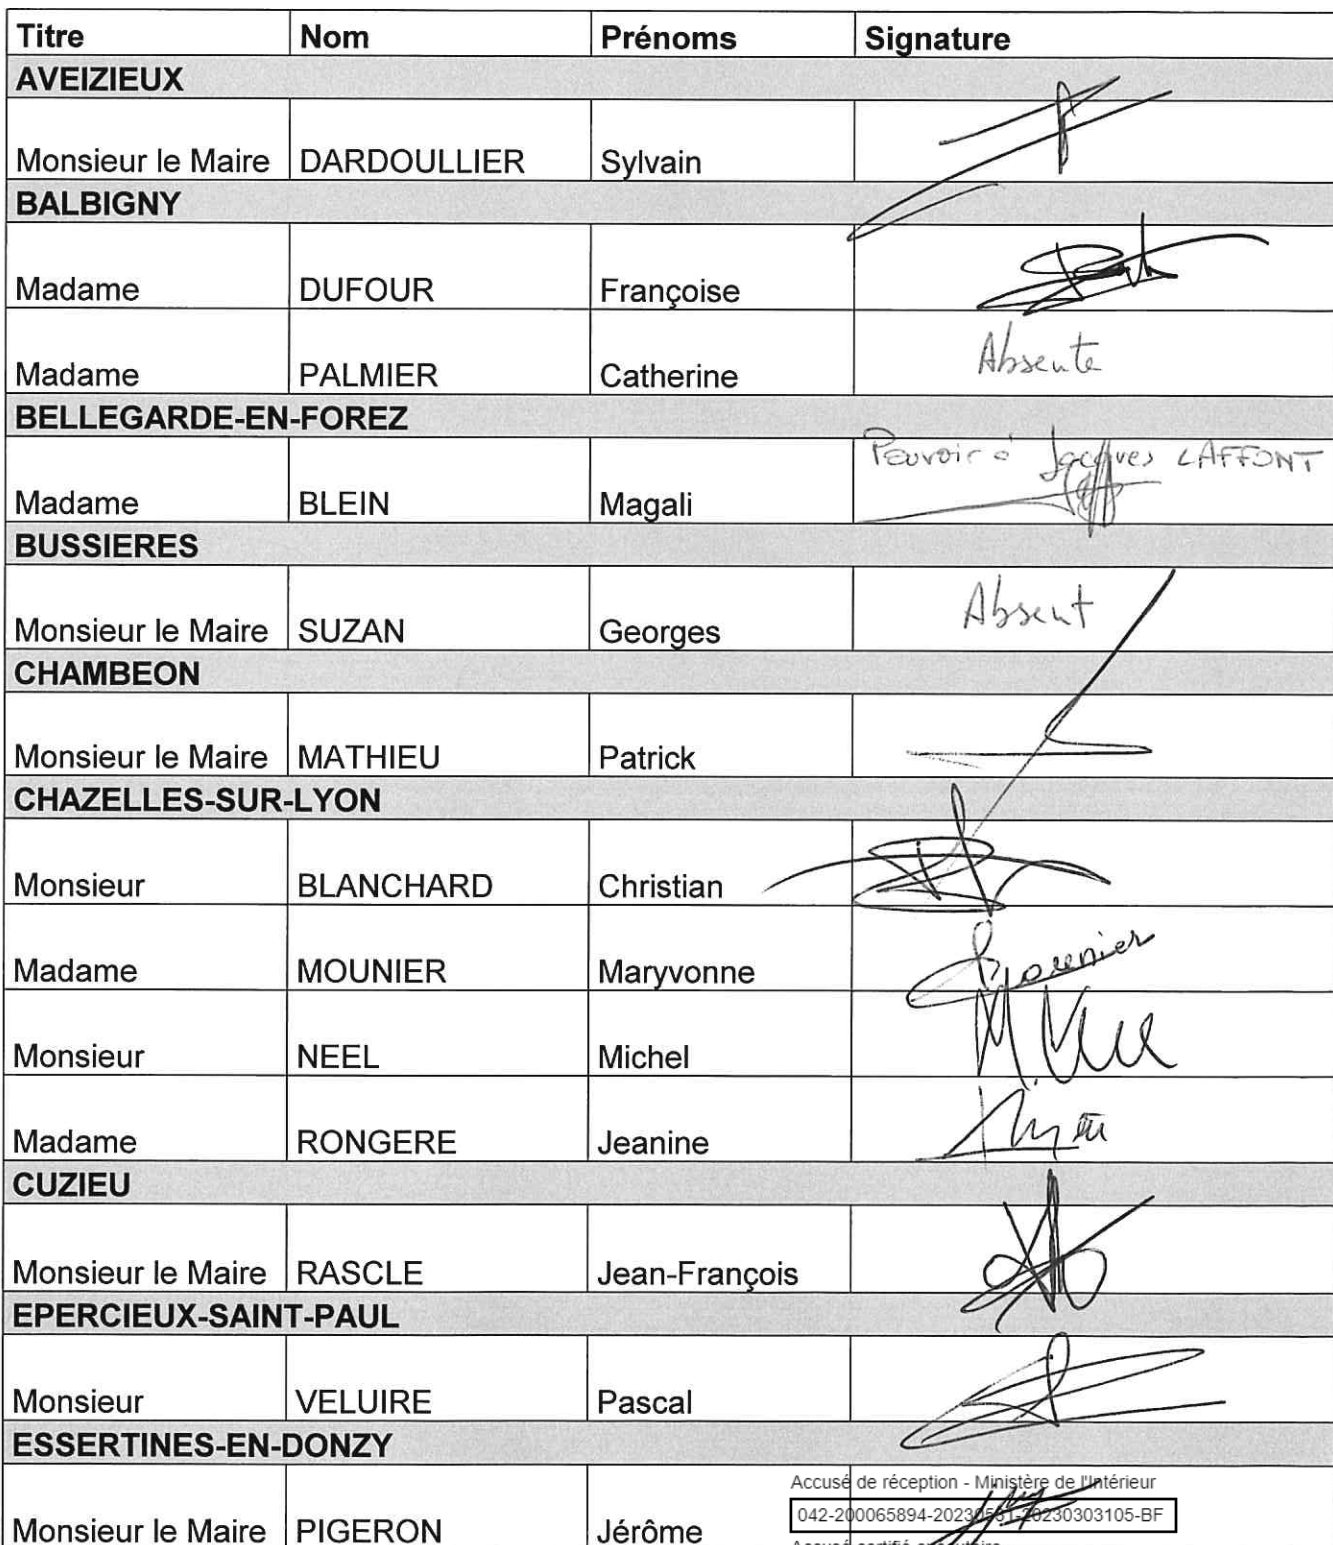 Titre Nom Prénoms Signature
AVEIZIEUX
Monsieur le Maire DARDOULLIER Sylvain
BALBIGNY
Madame DUFOUR Françoise
Madame PALMIER Catherine Absente
BELLEGARDE-EN-FOREZ
Pouvoir à Jacques LAFFONT
Madame BLEIN Magali
BUSSIERES
Monsieur le Maire SUZAN Georges Absent
CHAMBEON
Monsieur le Maire MATHIEU Patrick
CHAZELLES-SUR-LYON
Monsieur BLANCHARD Christian
Madame MOUNIER Maryvonne Mounier
Monsieur NEEL Michel
Madame RONGERE Jeanine
CUZIEU
Monsieur le Maire RASCLE Jean-François
EPERCIEUX-SAINT-PAUL
Monsieur VELUIRE Pascal
ESSERTINES-EN-DONZY
Accusé de réception - Ministère de l'Intérieur
042-200065894-20230531-20230303105-BF
Monsieur le Maire PIGERON Jérôme